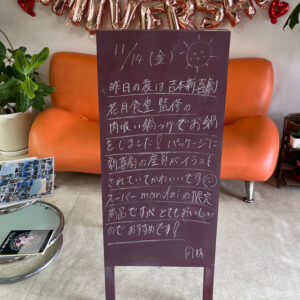 11/14(金)
昨日の夜は吉本新喜劇
花月食堂監修の
肉吸い鍋つゆでお鍋
をしました！パッケージに
新喜劇の座員がイラスト
されていてかわいいです
スーパーmandaiの限定
商品ですが とてもおいしい
のでおすすめです！